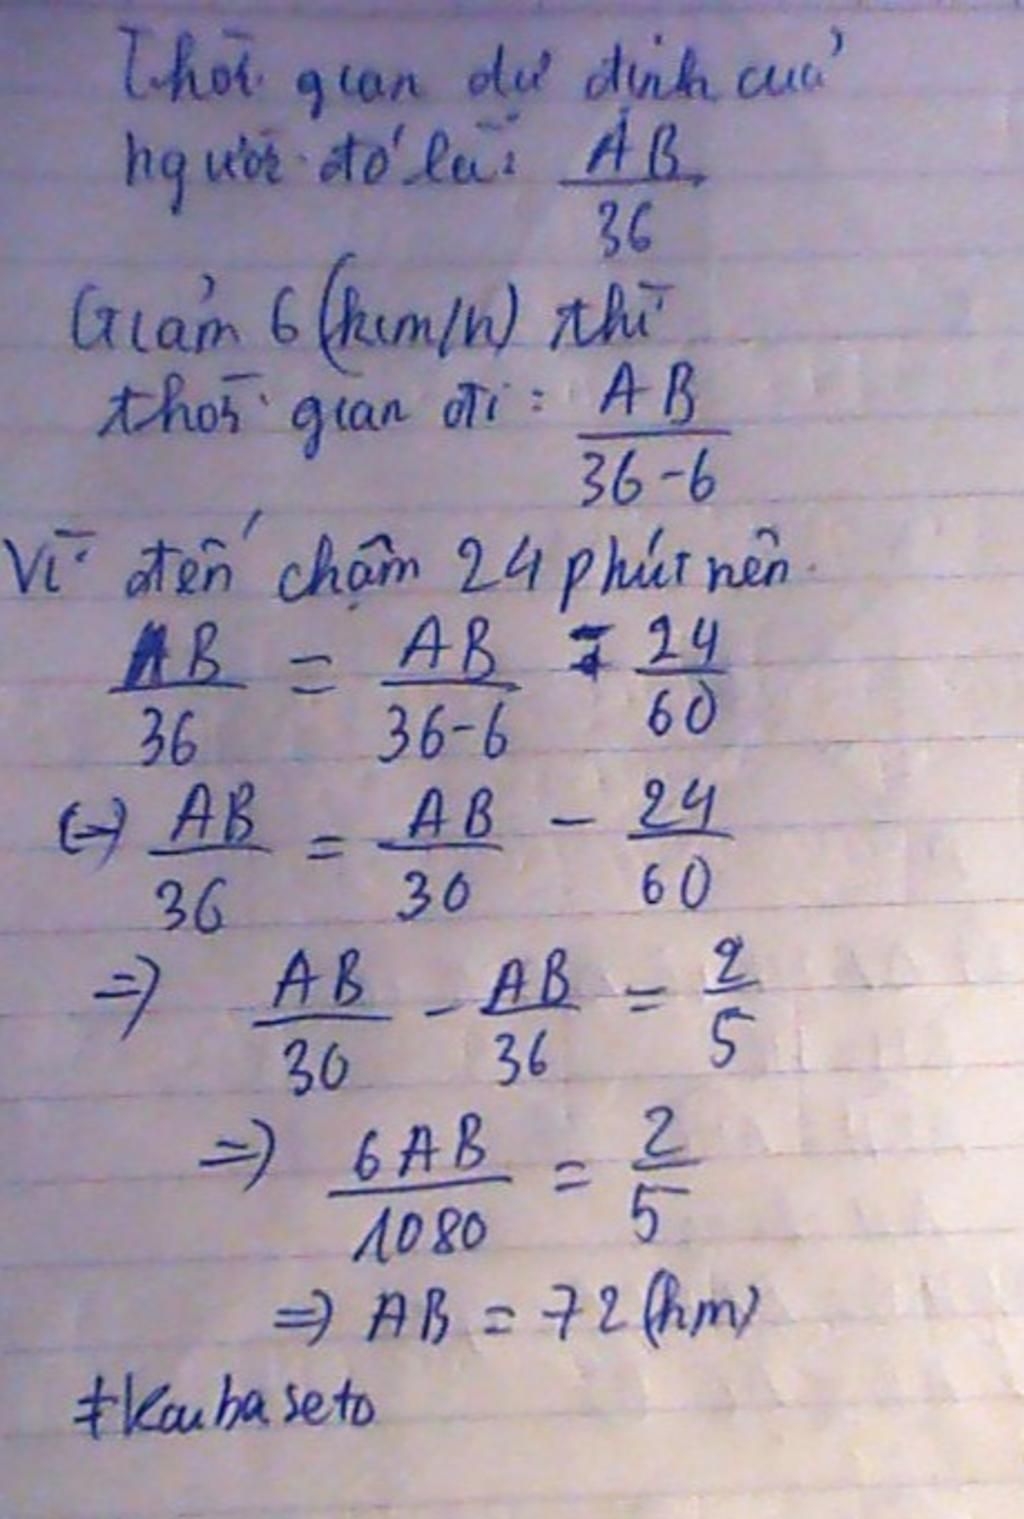 Thời gian dự định của
người đó là: AB/36
Giảm 6 (km/h) thì
thời gian đi: AB/(36-6)
Vì đến chậm 24 phút nên
AB/36 = AB/(36-6) - 24/60
(=) AB/36 = AB/30 - 24/60
=) AB/30 - AB/36 = 2/5
=) 6AB/1080 = 2/5
=) AB = 72 (km)
#Kaubaseto